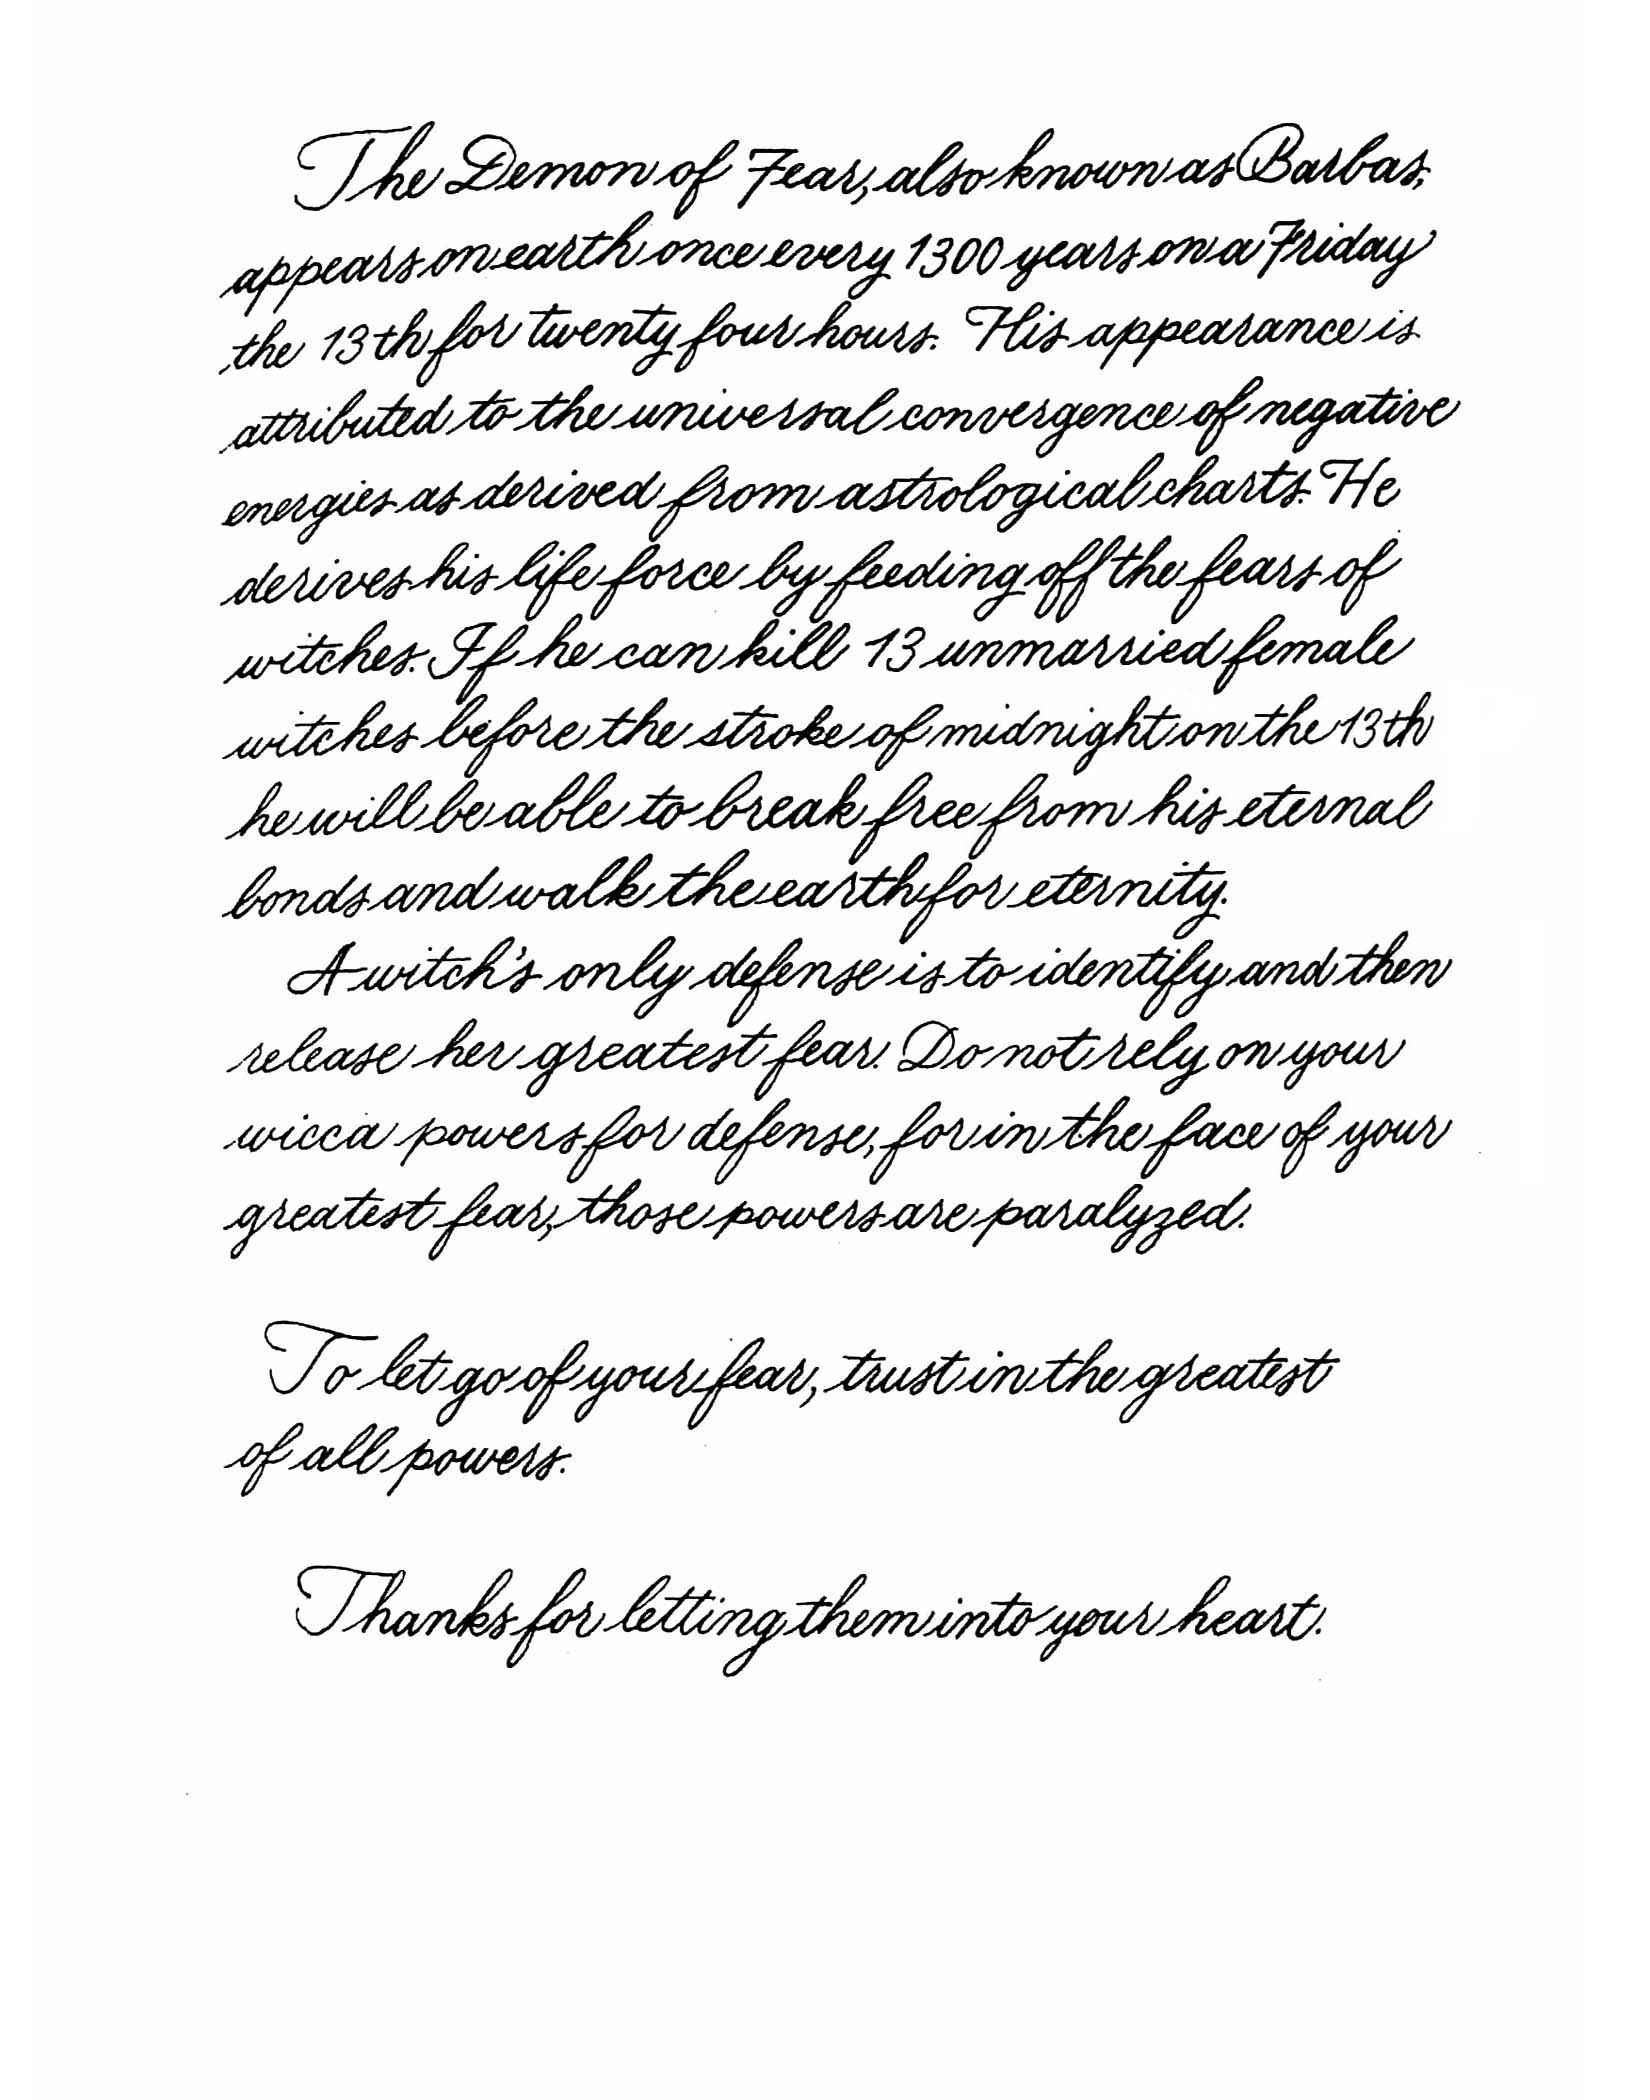 The Demon of Fear, also known as Barbas,
appears on earth once every 1300 years on a Friday
the 13th for twenty four hours. His appearance is
attributed to the universal convergence of negative
energies as derived from astrological charts. He
derives his life force by feeding off the fears of
witches. If he can kill 13 unmarried female
witches before the stroke of midnight on the 13th
he will be able to break free from his eternal
bonds and walk the earth for eternity.
A witch's only defense is to identify and then
release her greatest fear. Do not rely on your
wicca powers for defense, for in the face of your
greatest fear, those powers are paralyzed.
To let go of your fear, trust in the greatest
of all powers.
Thanks for letting them into your heart.